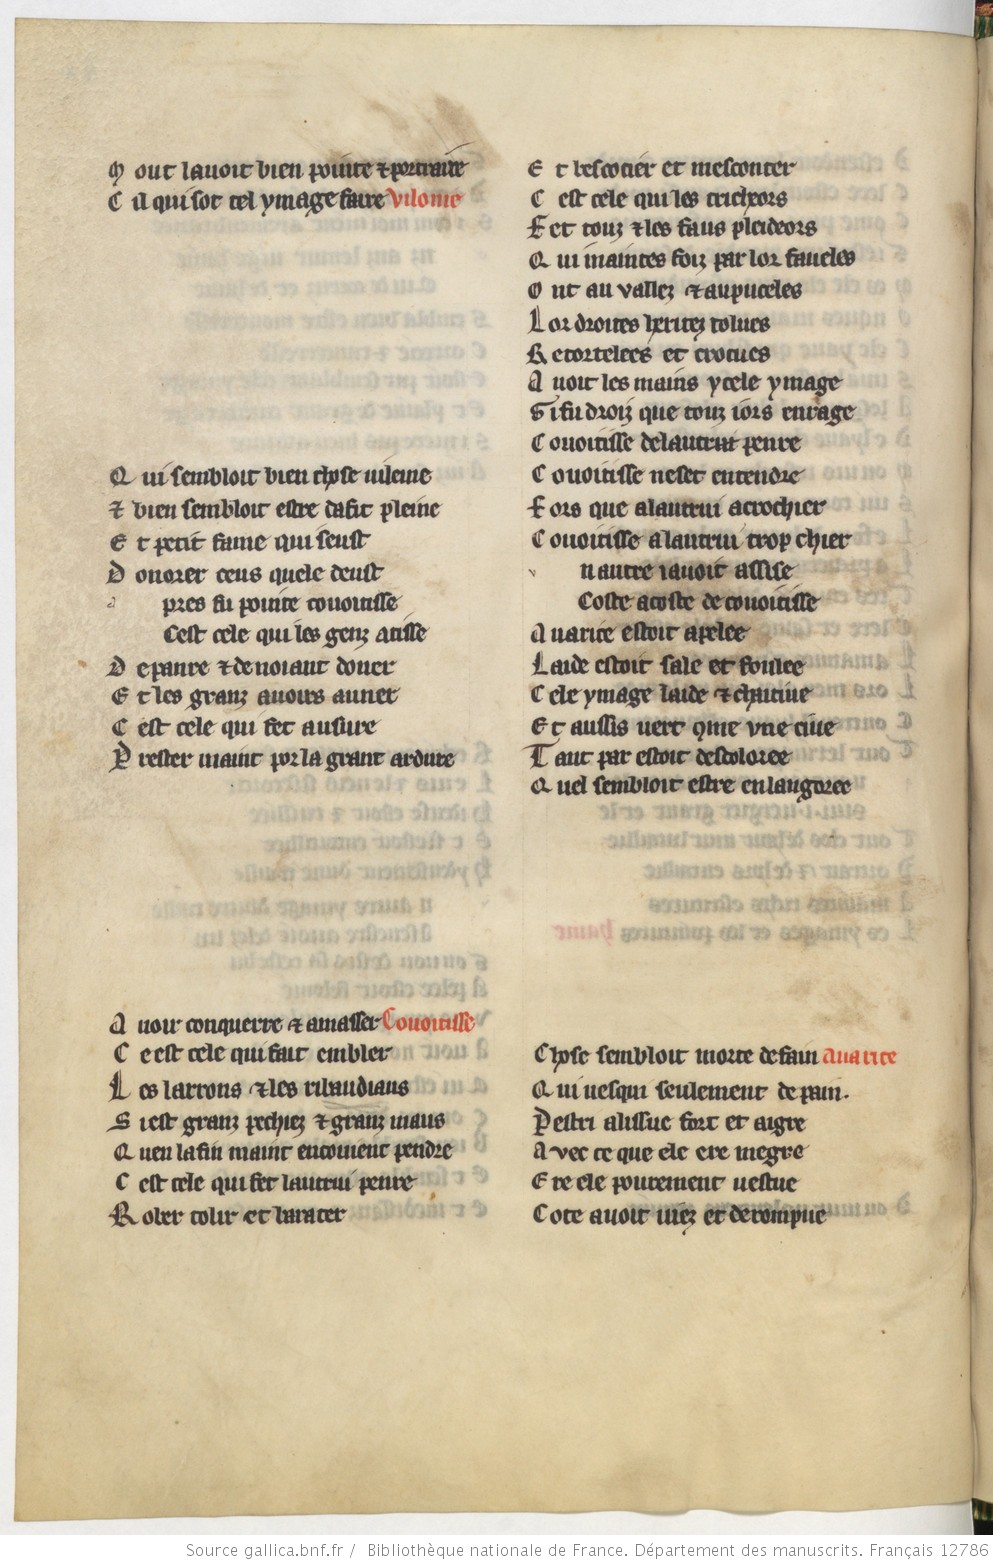 M out lauoit bien pointe ⁊ portraite
C il qui sot tel ymage faire Vilonie
Q ui sembloit bien chose uileine
⁊ bien sembloit estre dafit pleine
E t petit fame qui seust
D onorer ceus quele deust
a pres fu pointe couoitisse
Cest cele qui les genz atisse
D e panre ⁊ de noiant doner
E t les granz auours auner
C est cele qui fet a usure
P rester maint por la grant ardure
A uoir conquerre ⁊ amasser Couoitisse
C e est cele qui fait embler
L es larrons ⁊ les ribaudiaus
S i est granz pechiez ⁊ granz maus
Q uen la fin maint encouient pendre
C est cele qui fet lautrui penre
R ober tolir et barater
E t bescocier et mesconter
C est cele qui les tricheors
F et touz ⁊ les faus pleideors
Q ui maintes foiz par lor faueles
O nt au vallez ⁊ au puceles
L or droites heritez tolues
R ecortelees et crocues
A uoit les mains ycele ymage
Si fu droiz que touz iors enrage
C ouoitisse de lautrui penre
C ouoitisse ne set entendre
F ors que a lautrui acrochier
C ouoitisse a lautrui trop chier
n autre i auoit assise
Coste a coste de couoitisse
A uarice estoit apelee
L aide estoit sale et foulee
C ele ymage laide ⁊ chaitiue
E t aussis uert 9me vne ciue
T ant par estoit descoloree
Q uel sembloit estre enlangoree
Chose sembloit morte de fain Auarice
Q ui uesqui seulement de pain.
Pestri a lissue fort et aigre
A vec ce que ele ere megre
E re ele pourement uestue
C ote auoit uiez et derompue
Source gallica.bnf.fr / Bibliothèque nationale de France. Département des manuscrits. Français 12786